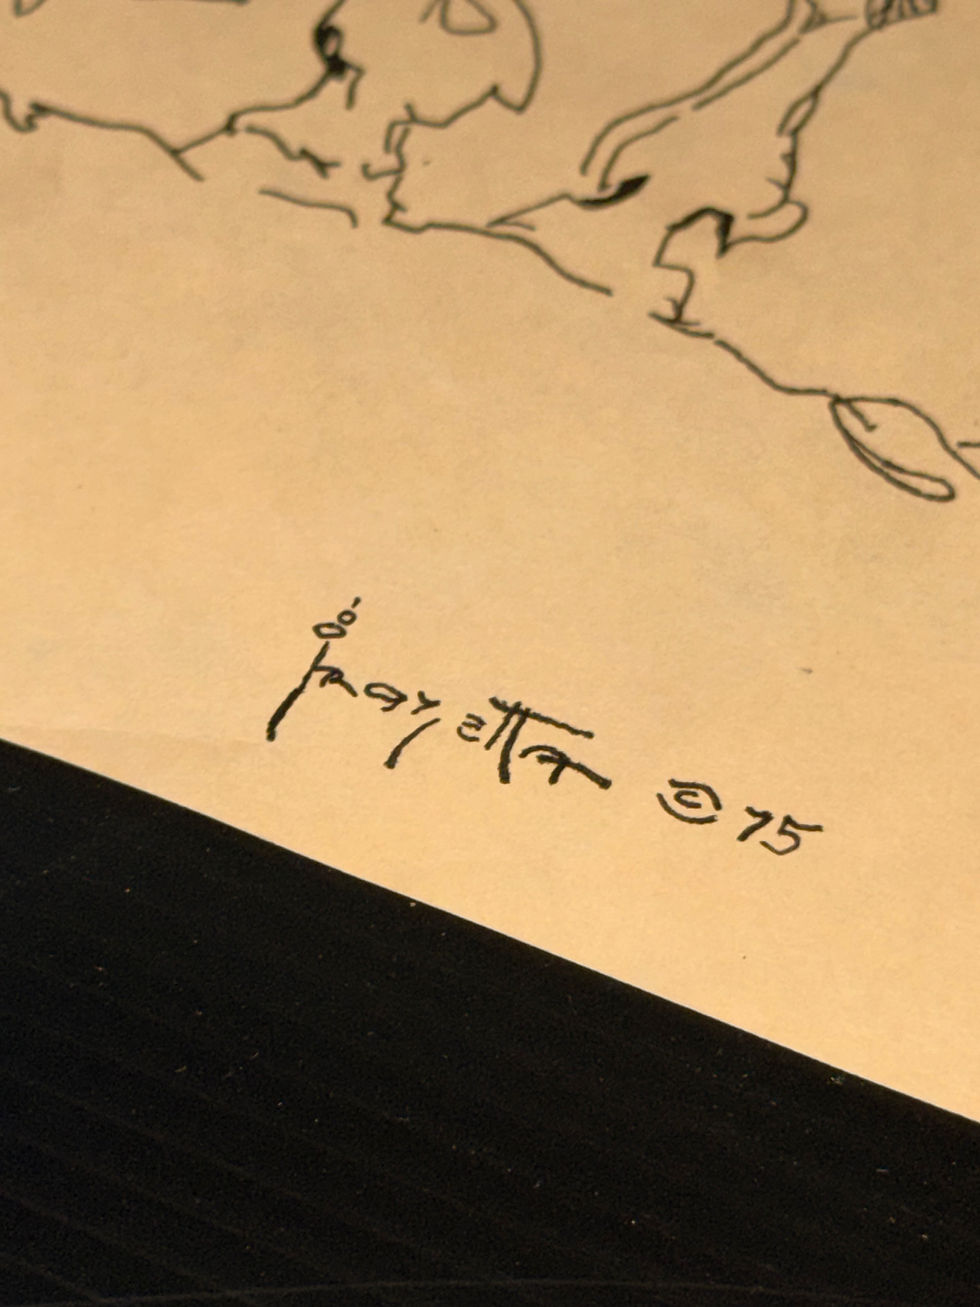 frazetta © 75